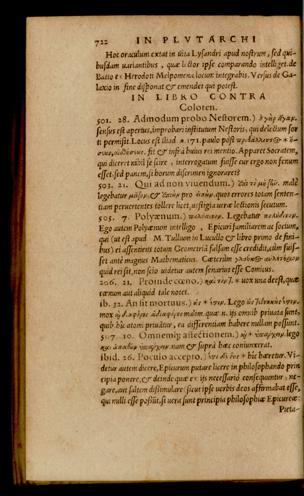 722 IN PLVTARCHI
Hoc oraculum extat in vita Lysandri apud nostrum, sed qui-
busdam variantibus, quæ lector ipse comparando intelliget. de
Batio ex Herodoti Melpomene locum integrabis. Versus de Ga-
laxio in fine disponat & emendet qui potest.
IN LIBRO CONTRA
Colotem.
501. 28. Admodum probo Nestorem.)
sensus est apertus, improbari institutum Nestoris, qui delectum for-
ti permisit. Locus est Iliad. 171. paulo post
fit & infra huius rei mentio. Apparet Socratem,
qui diceret nihil se scire, interrogatum fuisse cur ergo non fenum
esset: sed panem, si horum discrimen ignoraret?
503. 21. Qui ad non viuendum.) malè
legebatur pro quot errores totam senten-
tiam peruertentes tollere licet, vestigia veræ lectionis secutum.
505. 7. Polyænum.) Legebatur
Ego autem Polyænum intelligo, Epicuri familiarem ac socium,
qui (ut est apud M. Tullium in Lucullo & libro primo de fini-
bus) ei assentiens totam Geometriã falsam esse credidit, cùm fuis-
set antè magnus Mathematicus. Cæterùm
quid rei sit, non scio videtur autem senarius esse Comicus.
206. 21. Proinde cœno,) vox una deest, quæ
cœnum aut aliquid tale notet.
ib. 32. An sit mortuus.) Lego
mox malim. quæ n. iis omnib. priuata sunt,
quib. hic atomi priuãtur, ea differentiam habere nullam possunt.
507. 10. Omnemq; affectionem.) lego
nam & suprà hæc coniunxerat.
ibid. 26. Poculo accepto.) hic hæretur. Vi-
detur autem dicere, Epicurum putare licere in philosophando prin-
cipia ponere, & deinde quæ ex iis necessariò consequuntur, ne-
gare, aut saltem dissimulare (sicut ipse verbis deos affirmabat esse,
qui nulli esse possint, si vera sunt principia philosophiæ Epicureæ:
Pieta-